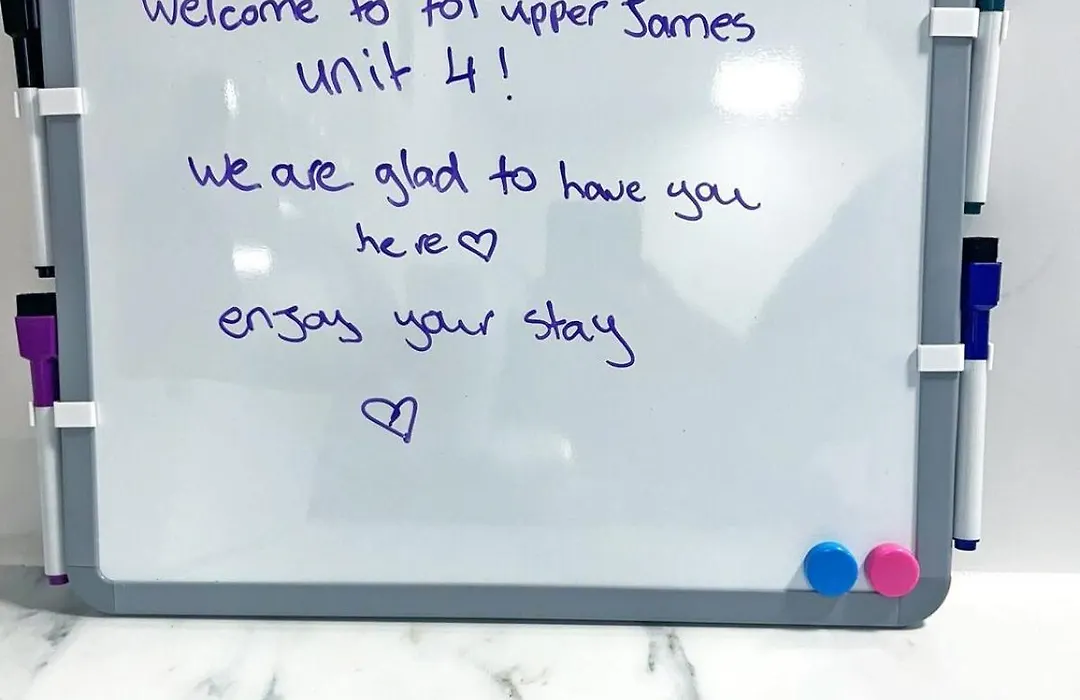 Welcome to 101 upper James
unit 4!
We are glad to have you
here♡
enjoy your stay
♡